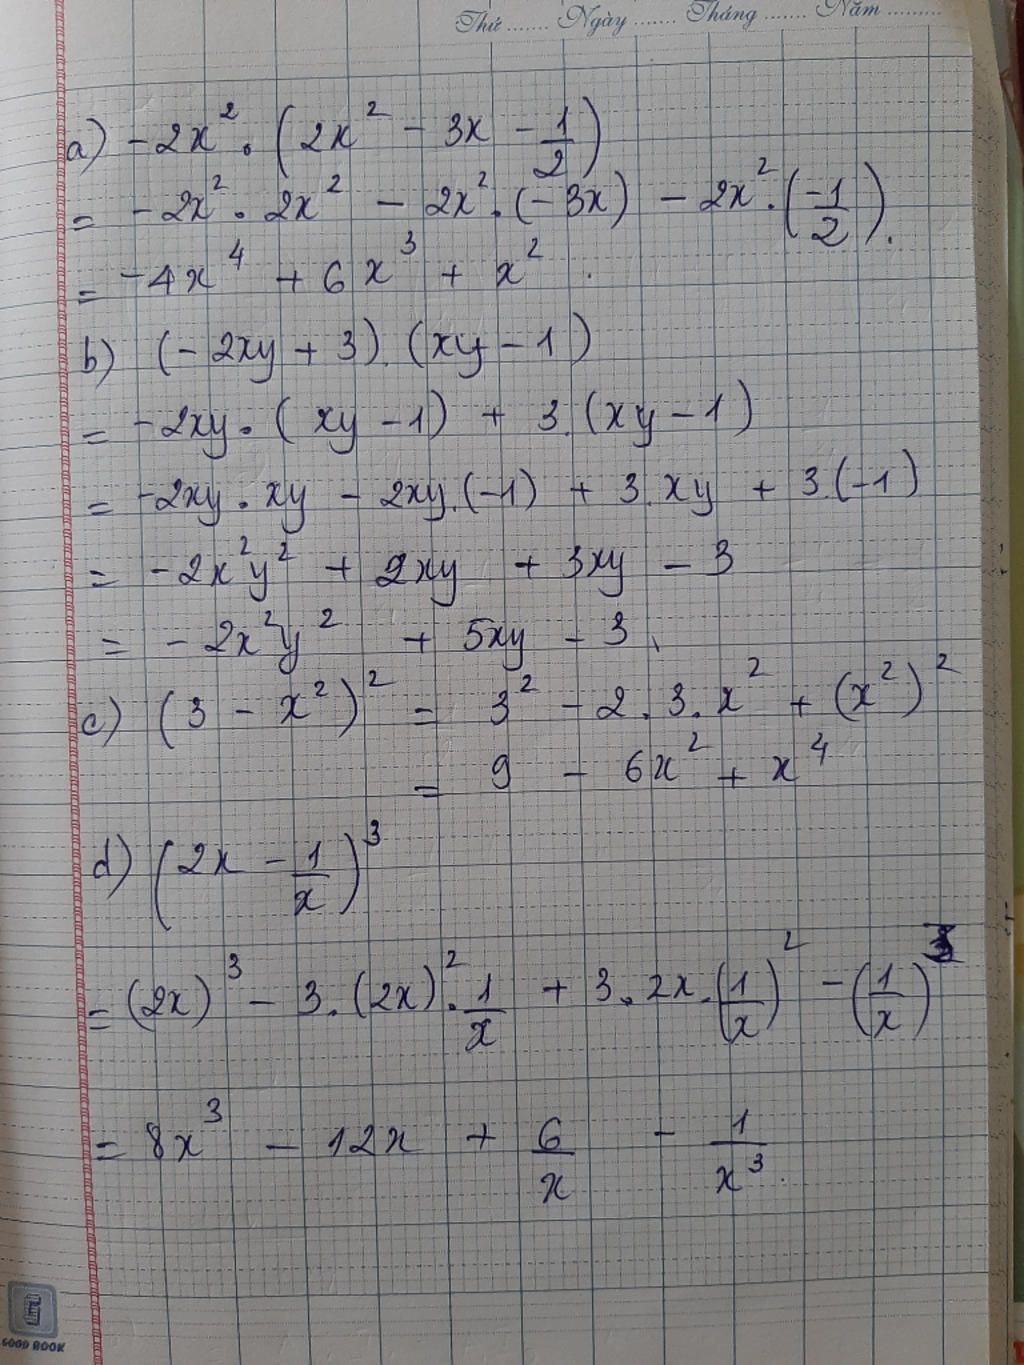 Thứ ....... Ngày ....... Tháng ....... Năm .........
a) -2x² . (2x² - 3x - 1/2)
= -2x² . 2x² - 2x² . (-3x) - 2x² . (-1/2).
= -4x⁴ + 6x³ + x².
b) (-2xy + 3).(xy - 1)
= -2xy . (xy - 1) + 3.(xy - 1)
= -2xy . xy - 2xy.(-1) + 3.xy + 3.(-1)
= -2x²y² + 2xy + 3xy - 3
= -2x²y² + 5xy - 3.
c) (3 - x²)² = 3² - 2.3.x² + (x²)²
= 9 - 6x² + x⁴
d) (2x - 1/x)³
= (2x)³ - 3.(2x)² . 1/x + 3.2x.(1/x)² - (1/x)³
= 8x³ - 12x + 6/x - 1/x³.
GOOD BOOK